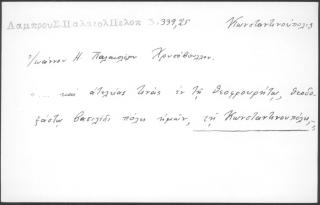 Λαμπρου Σ. Παλαιολ Πελοπ 3.339,25 Κωνσταντινούπολις
Ἰωάννου Η Παλαιολόγου Χρυσόβουλλον.
«... και ἀτελείας τινὰς ἐν τῇ θεοφρουρήτῳ, θεοδο-
ξάστῳ βασιλίδι πόλει ἡμῶν, τῇ Κωνσταντινουπόλει,-